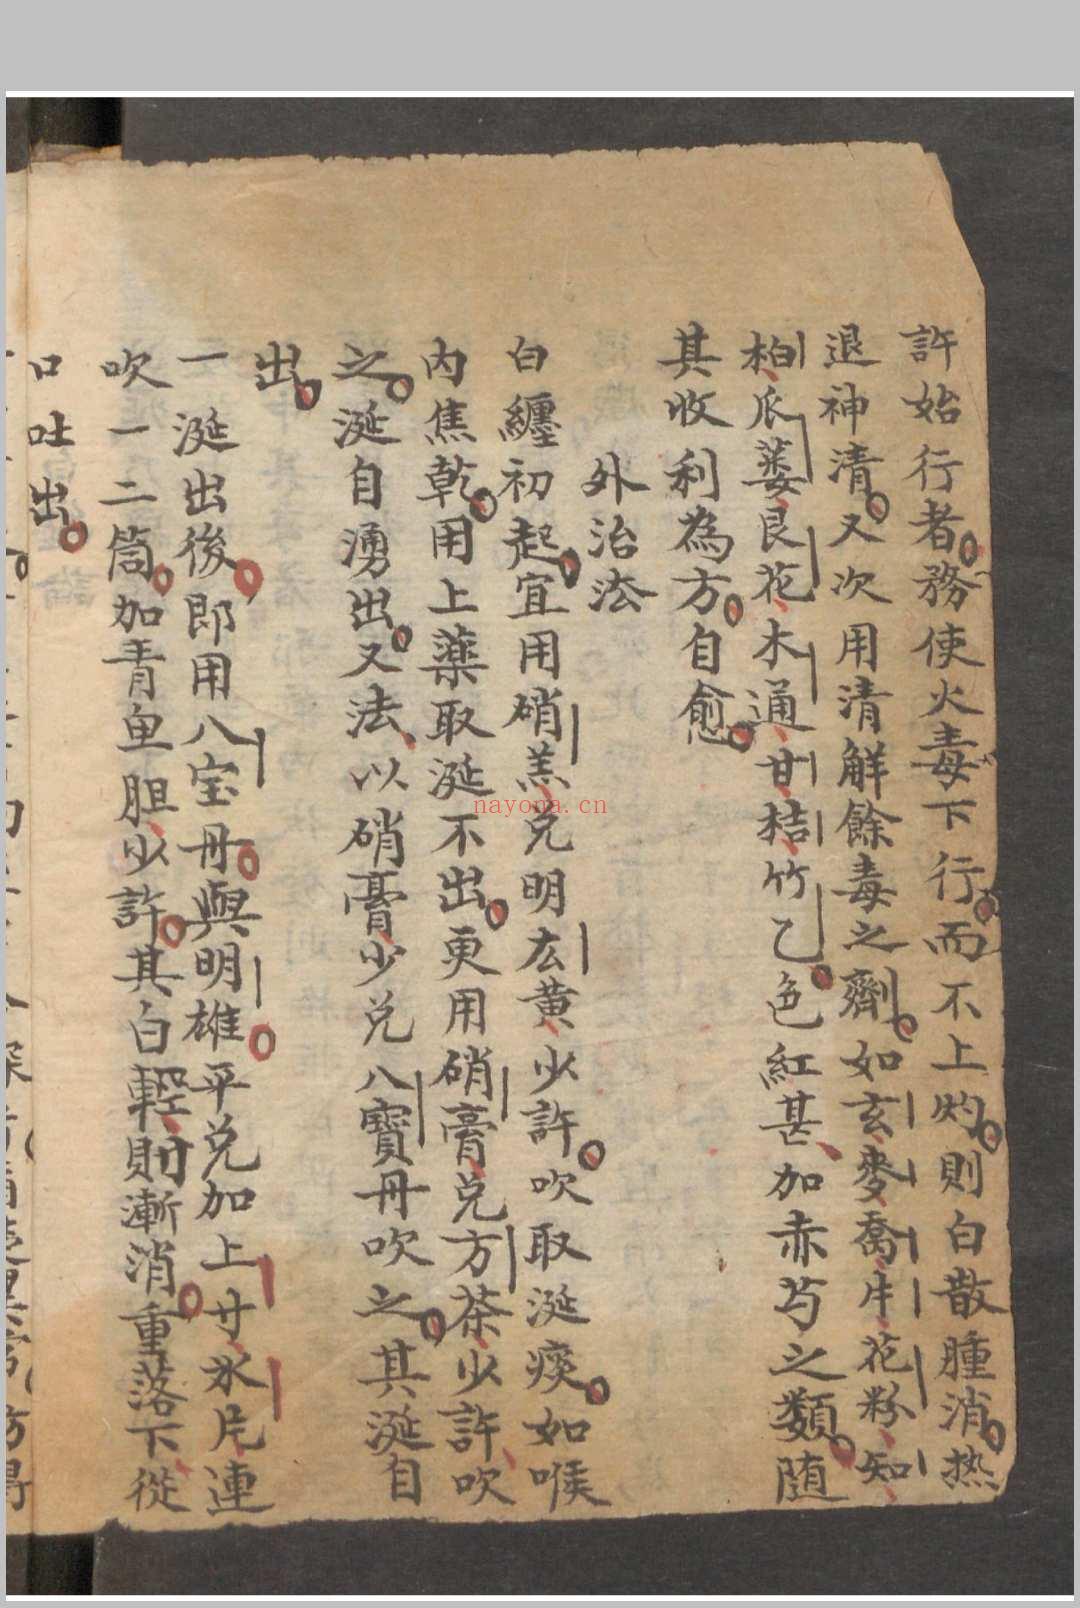 許始行者務使火毒下行而不上灼則白散腫消热
退神清又次用清解餘毒之劑如玄麥喬牛花粉知
柏瓜蔞艮花木通甘桔竹乙色紅甚加赤芍之類随
其收利為方自愈
外治法
白纏初起宜用硝羔兑明厷黄少許吹取涎痰如喉
内焦乾用上薬取涎不出更用硝膏兑方茶少許吹
之涎自湧出又法以硝膏少兑八寶丹吹之其涎自
出
一涎出後即用八宝丹與明雄平兑加上寸氷片連
吹一二筒加青鱼胆少許其白輕則漸消重落下從
口吐出
nayona.cn